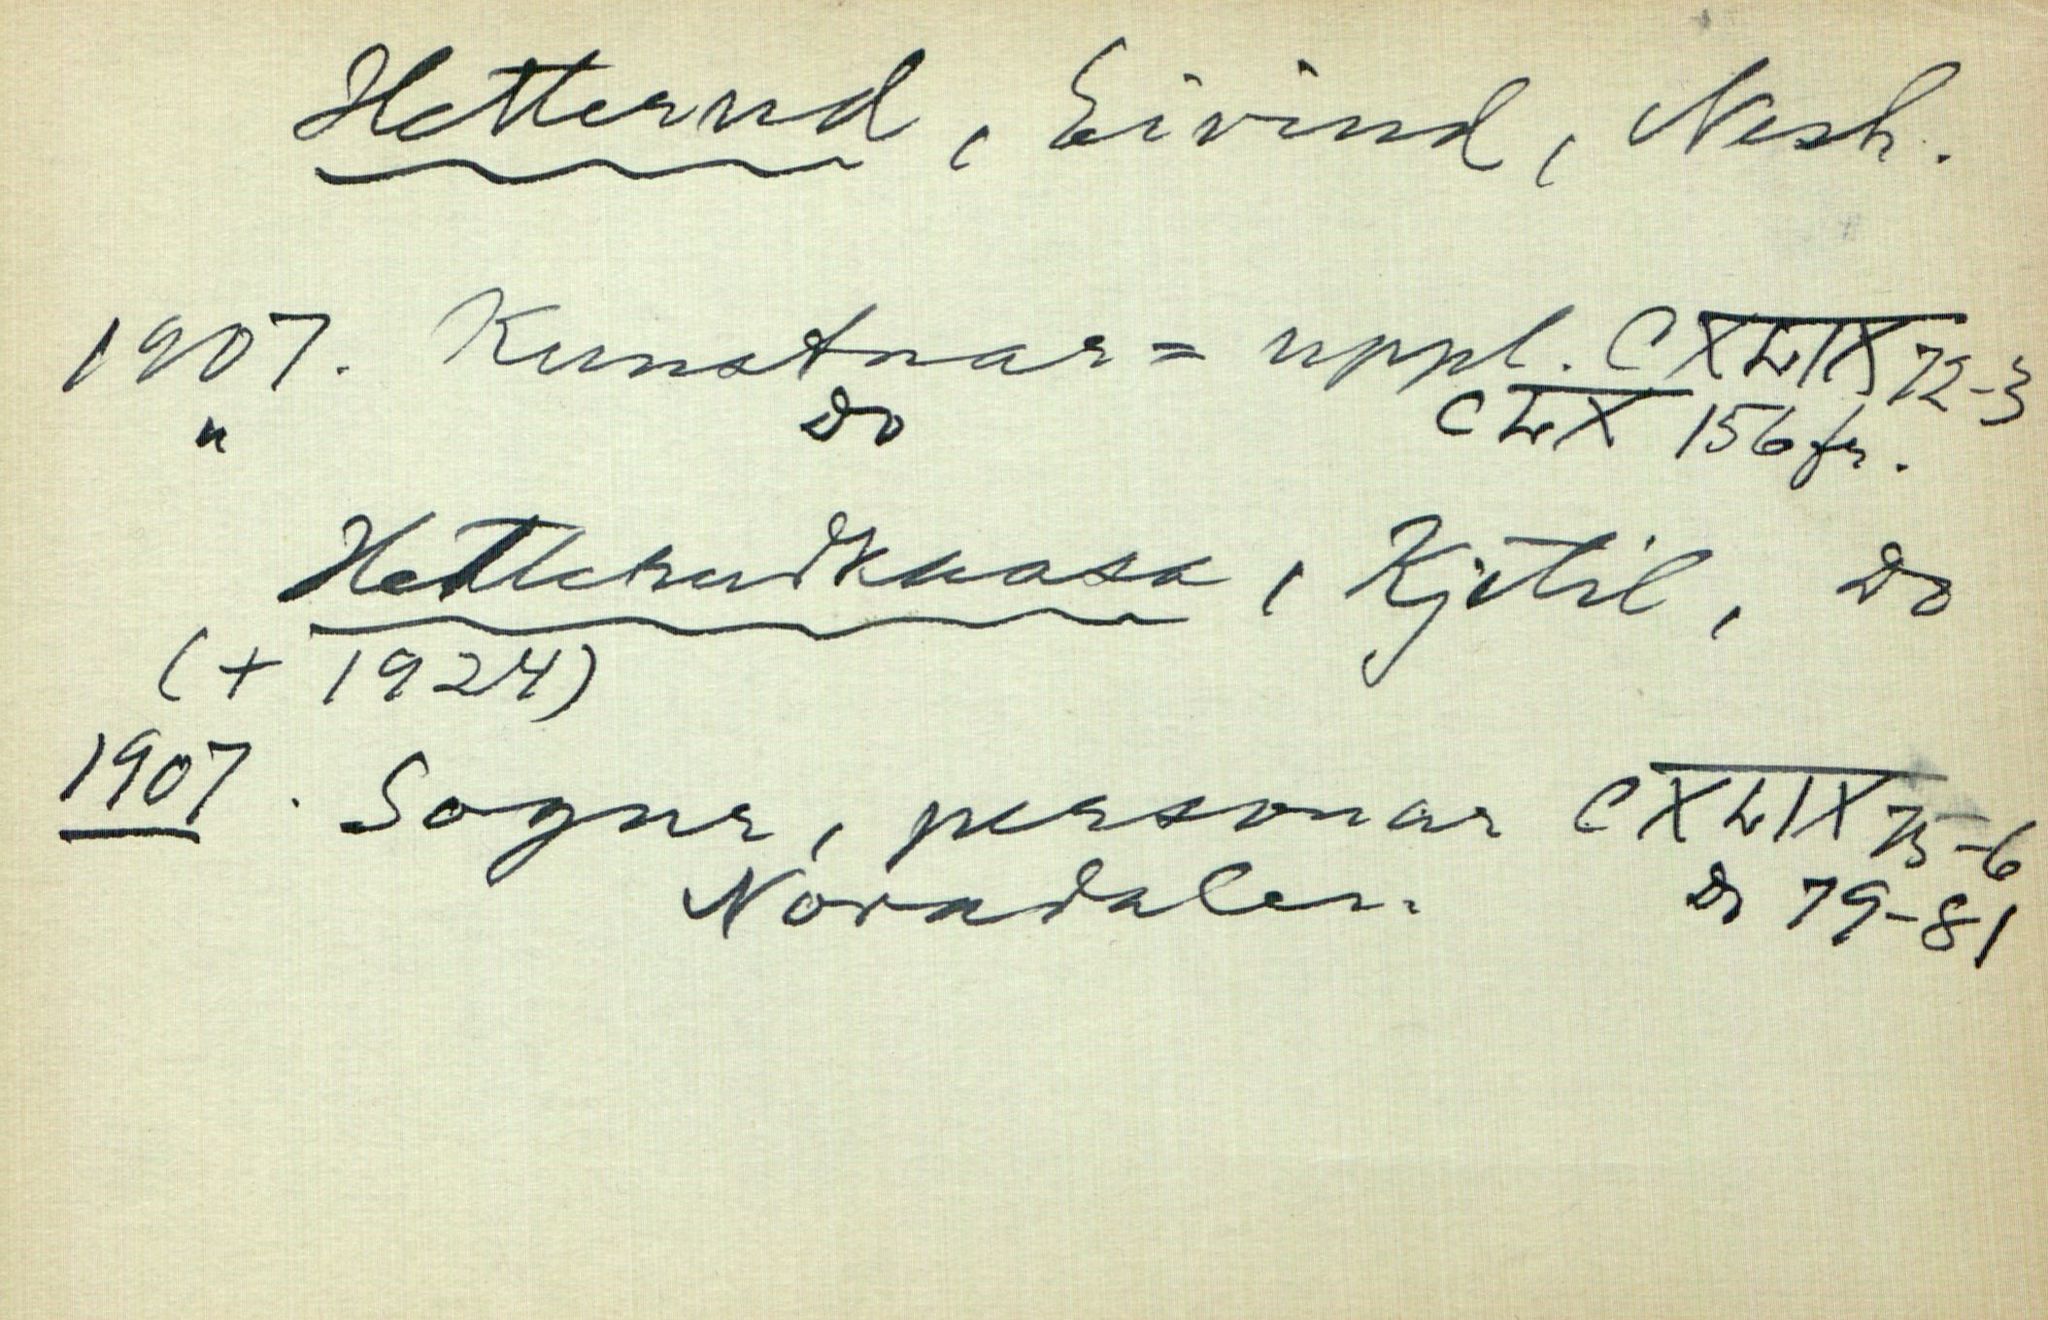 Hetterud, Eivind, Nesh.
1907. Kunstnar = uppl. CXLIX 72-3
" Do CLX 156 fr.
Kjetil, Do
(+ 1924)
1907. Sogur, personar CXLIX 75-6
Noradalen. Do 79-81